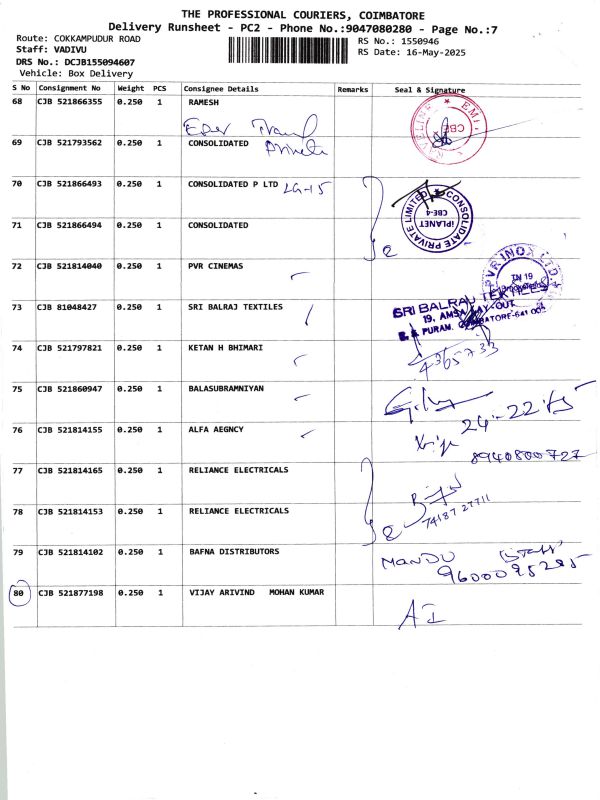 THE PROFESSIONAL COURIERS, COIMBATORE
Delivery Runsheet - PC2 - Phone No.:9047080280 - Page No.:7
Route: COKKAMPUDUR ROAD
RS No.: 1550946
Staff: VADIVU
RS Date: 16-May-2025
DRS No.: DCJB155094607
Vehicle: Box Delivery
S No Consignment No Weight PCS Consignee Details Remarks Seal & Signature
68 CJB 521866355 0.250 1 RAMESH
69 CJB 521793562 0.250 1 CONSOLIDATED
Private
70 CJB 521866493 0.250 1 CONSOLIDATED P LTD LG-15
CONSOLIDATE PRIVATE LIMITED
iPLANET
CBE-4
71 CJB 521866494 0.250 1 CONSOLIDATED
2
72 CJB 521814040 0.250 1 PVR CINEMAS
PVR INOX LTD.
TN 19
73 CJB 81048427 0.250 1 SRI BALRAJ TEXTILES
SRI BALRAJ TEXTILES
74 CJB 521797821 0.250 1 KETAN H BHIMARI
75 CJB 521860947 0.250 1 BALASUBRAMNIYAN
76 CJB 521814155 0.250 1 ALFA AEGNCY
8940800727
77 CJB 521814165 0.250 1 RELIANCE ELECTRICALS
2
74187 27711
78 CJB 521814153 0.250 1 RELIANCE ELECTRICALS
79 CJB 521814102 0.250 1 BAFNA DISTRIBUTORS
9600095285
80 CJB 521877198 0.250 1 VIJAY ARIVIND MOHAN KUMAR